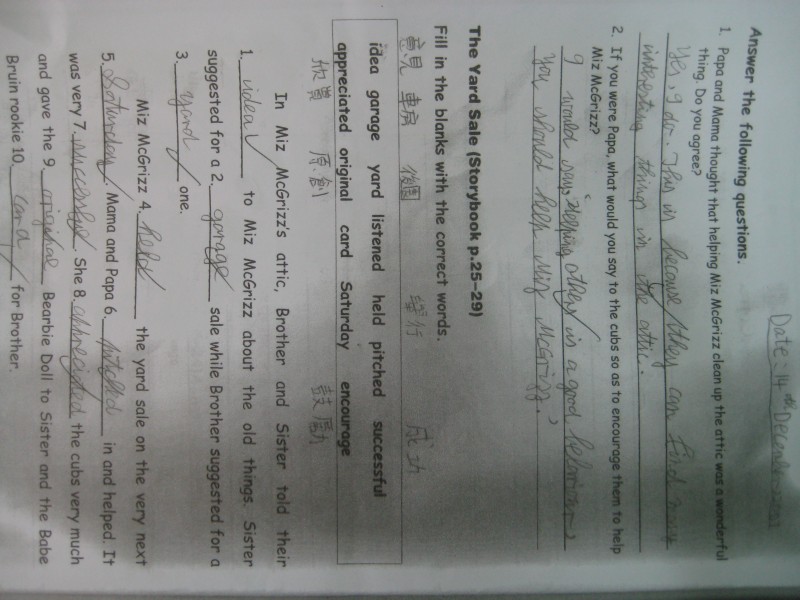 Date: 14th December
Answer the following questions.
1. Papa and Mama thought that helping Miz McGrizz clean up the attic was a wonderful
thing. Do you agree?
Yes, I do. This is because they can find many
interesting things in the attic.
2. If you were Papa, what would you say to the cubs so as to encourage them to help
Miz McGrizz?
I would say, "Helping others is a good behaviour,
you should help Miz McGrizz."
The Yard Sale (Storybook p.25-29)
Fill in the blanks with the correct words.
意見 車房 後園 舉行 成功
idea garage yard listened held pitched successful
appreciated original card Saturday encourage
欣賞 原創 鼓勵
In Miz McGrizz's attic, Brother and Sister told their
1. idea to Miz McGrizz about the old things. Sister
suggested for a 2. garage sale while Brother suggested for a
3. yard one.
Miz McGrizz 4. held the yard sale on the very next
5. Saturday. Mama and Papa 6. pitched in and helped. It
was very 7. successful. She 8. appreciated the cubs very much
and gave the 9. original Bearbie Doll to Sister and the Babe
Bruin rookie 10. card for Brother.